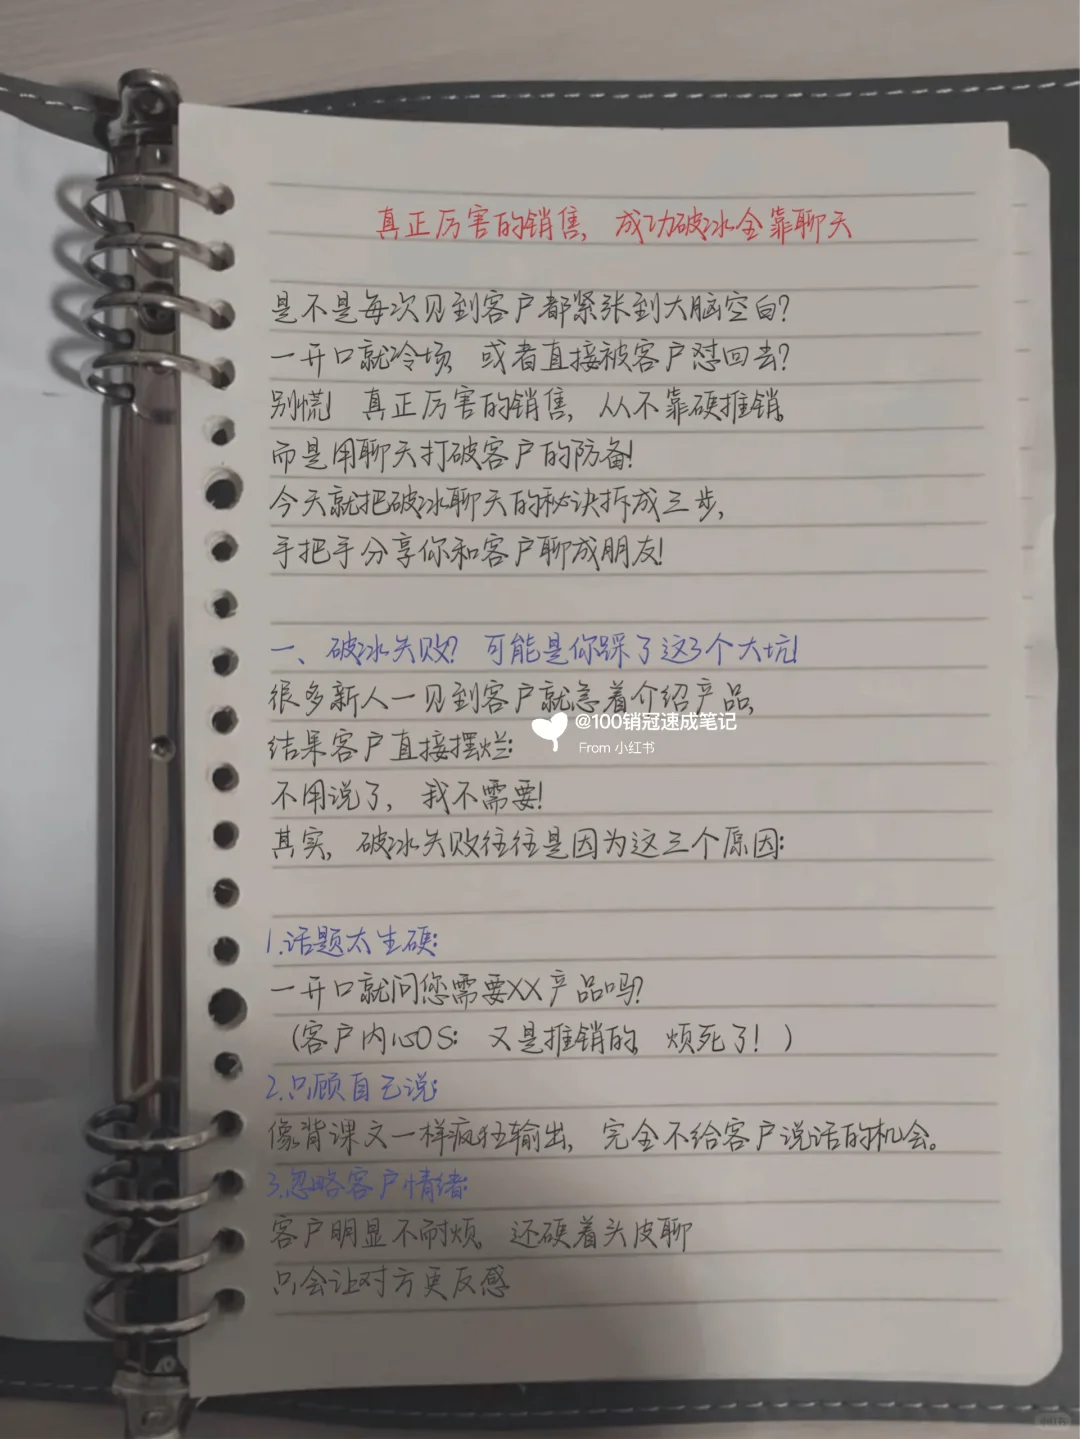 真正厉害的销售，成功破冰全靠聊天
是不是每次见到客户都紧张到大脑空白？
一开口就冷场，或者直接被客户怼回去？
别慌！真正厉害的销售，从不靠硬推销，
而是用聊天打破客户的防备！
今天就把破冰聊天的秘诀拆成三步，
手把手分享你和客户聊成朋友！
一、破冰失败？可能是你踩了这3个大坑！
很多新人一见到客户就急着介绍产品，
@100销冠速成笔记
From 小红书
结果客户直接摆烂：
不用说了，我不需要！
其实，破冰失败往往是因为这三个原因：
1.话题太生硬：
一开口就问您需要XX产品吗？
（客户内心OS：又是推销的，烦死了！）
2.只顾自己说：
像背课文一样疯狂输出，完全不给客户说话的机会。
3.忽略客户情绪：
客户明显不耐烦，还硬着头皮聊
只会让对方更反感